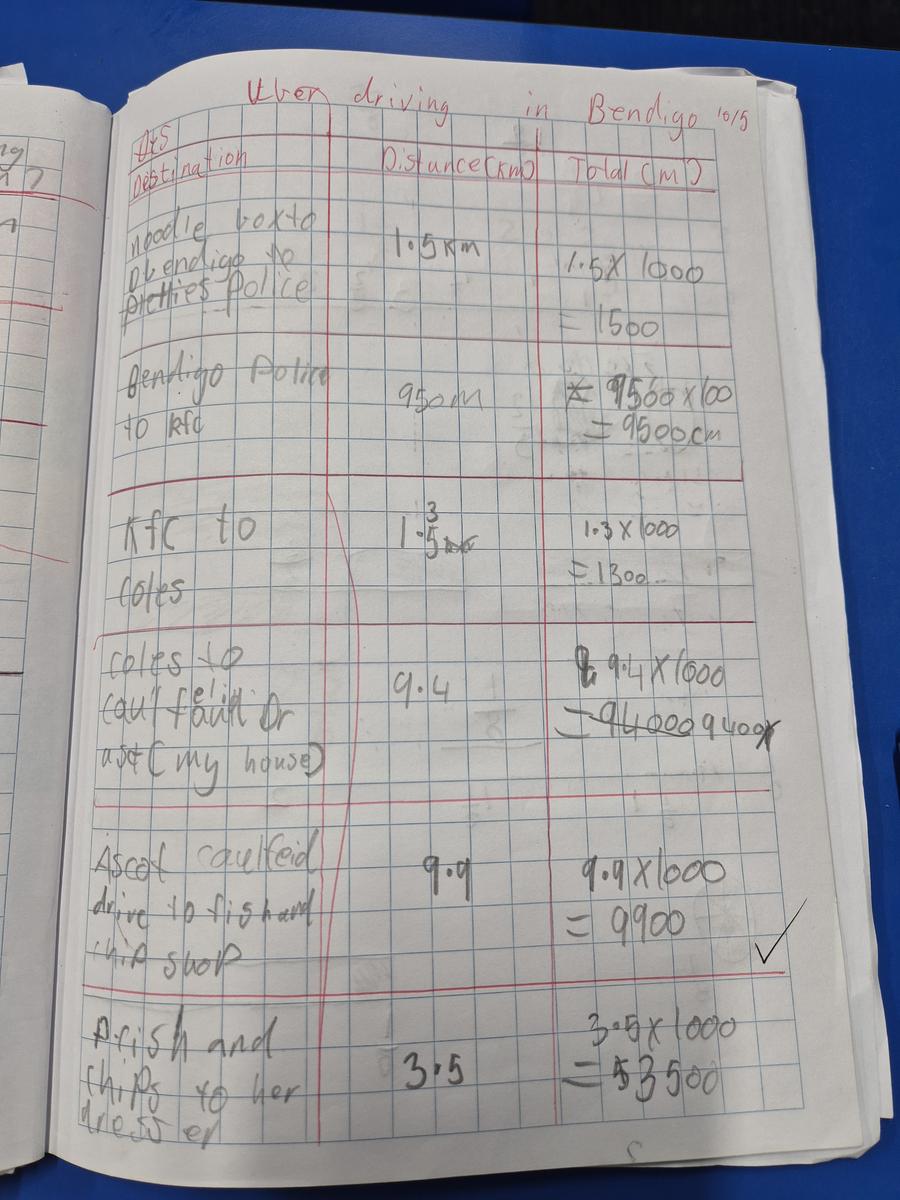 Uber driving in Bendigo 10/5
Des
Destination Distance (km) Total (m)
noodle box to
bendigo to
Police
1.5km
1.5 x 1000
= 1500
Bendigo Police
to kfc
950m
9500 x 100
= 9500cm
Kfc to
coles
1.3
1.3 x 1000
= 1300
coles to
caulfeild Dr
asc (my house)
9.4
9.4 x 1000
= 94000 9400
Ascot caulfeid
drive to fish and
chip shop
9.9
9.9 x 1000
= 9900
fish and
chips to her
dresser
3.5
3.5 x 1000
= 3500